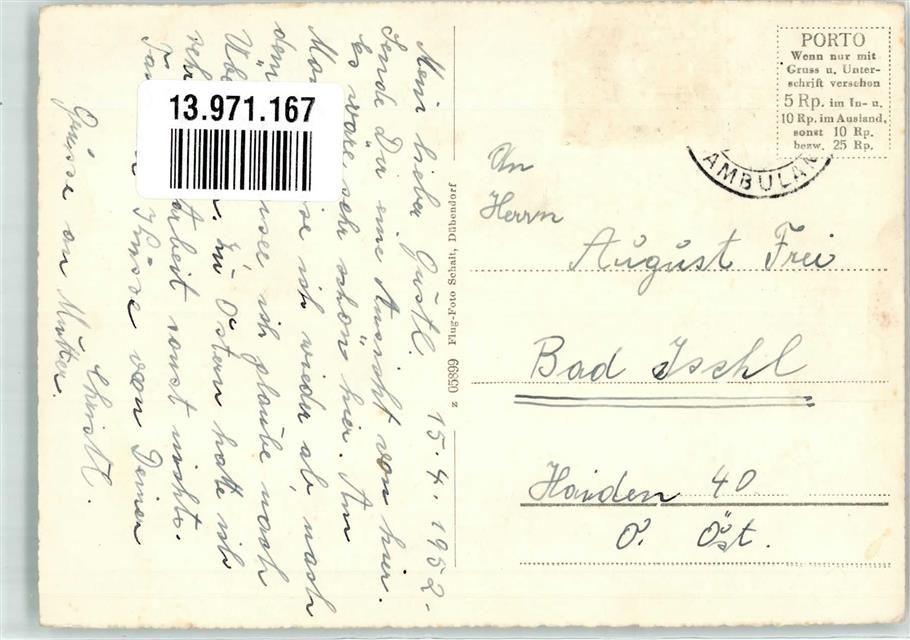 Mein lieber Gustl. 15.4.1952.
Sende Dir eine Ansicht von hier.
Es wäre sehr schön hier. Am
Mon se ich wieder ab, nach
dem ise ich glaube nach
Übe . zu Ostern hatte ich
sehr Arbeit sonst nichts.
Tau Küsse von Deiner
Christl.
Grüsse an Mutter.
13.971.167
z 05899 Flug-Foto Schait, Dübendorf
PORTO
Wenn nur mit
Gruss u. Unter-
schrift versehen
5 Rp. im In- u.
10 Rp. im Ausland,
sonst 10 Rp.
bezw. 25 Rp.
AMBULAN
An
Herrn
August Frei
Bad Ischl
Haiden 40
O. Öst.